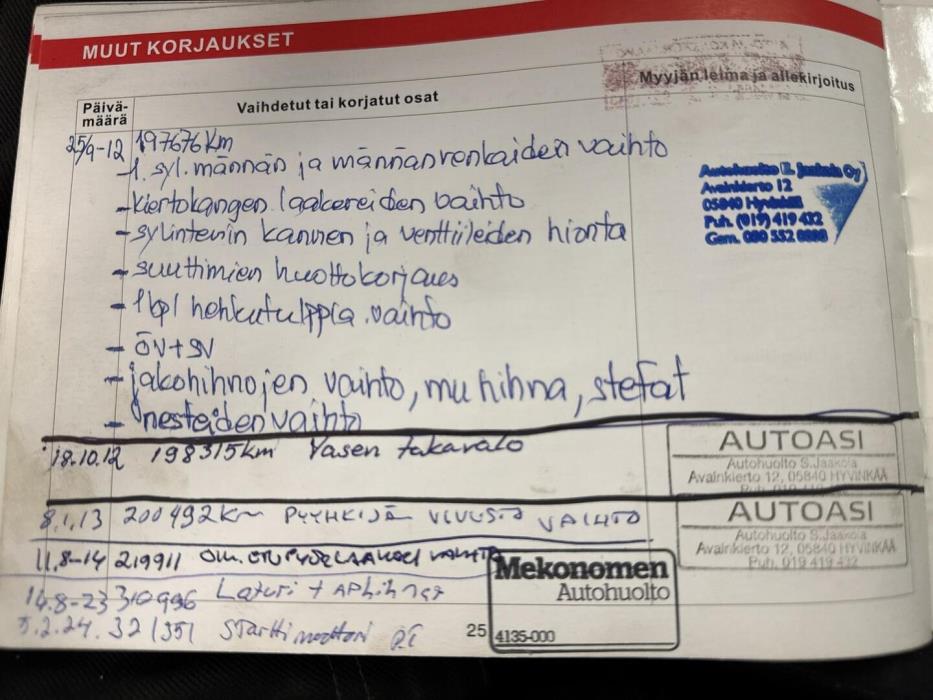 MUUT KORJAUKSET
Päivä-
määrä
Vaihdetut tai korjatut osat
Myyjän leima ja allekirjoitus
25/9-12 197676 km
-1. syl. männän ja männänrenkaiden vaihto
-kiertokangen laakereiden vaihto
-sylinterin kannen ja venttiileiden hionta
-suuttimien huoltokorjaus
-1 kpl hehkutulppia vaihto
- ÖV+SV
-jakohihnojen vaihto, mu hihna, stefat
- nesteiden vaihto
Autohuolto
Avainkierto 12
05840 Hyvinkää
Puh. (019) 419 432
Gsm.
18.10.12 198315km Vasen takavalo
AUTOASI
Autohuolto S.Jaakola
Avainkierto 12, 05840 HYVINKÄÄ
Puh. 019 419
8.1.13 200492km PYYHKIJÄN VAIHTO
AUTOASI
Autohuolto S.Jaakola
Avainkierto 12, 05840 HYVINKÄÄ
Puh. 019 419 432
11.8-14 219911 Oik. ETUPYÖRÄLAAKERI VAIHTO
Mekonomen
Autohuolto
4135-000
14.8-23 310996 Laturi + Aphihnat
5.2.24. 321351 Starttimoottori
25